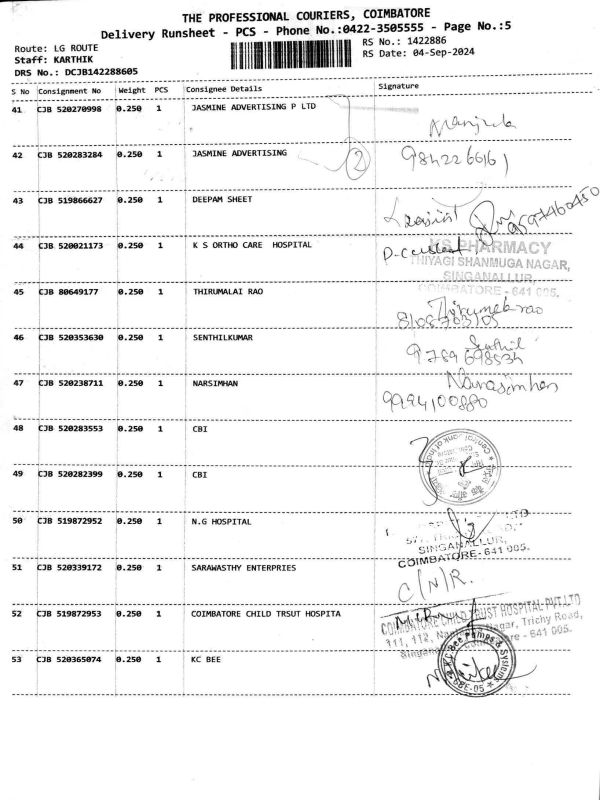 THE PROFESSIONAL COURIERS, COIMBATORE
Delivery Runsheet - PCS - Phone No.:0422-3505555 - Page No.:5
Route: LG ROUTE RS No.: 1422886
Staff: KARTHIK RS Date: 04-Sep-2024
DRS No.: DCJB142288605
S No Consignment No Weight PCS Consignee Details Signature
41 CJB 520270998 0.250 1 JASMINE ADVERTISING P LTD Manjula
42 CJB 520283284 0.250 1 JASMINE ADVERTISING 2 9842266161
43 CJB 519866627 0.250 1 DEEPAM SHEET
44 CJB 520021173 0.250 1 K S ORTHO CARE HOSPITAL KS PHARMACY
THIYAGI SHANMUGA NAGAR,
SINGANALLUR,
COIMBATORE - 641 005.
45 CJB 80649177 0.250 1 THIRUMALAI RAO
8108703105
46 CJB 520353630 0.250 1 SENTHILKUMAR Senthil
9789698534
47 CJB 520238711 0.250 1 NARSIMHAN Narasimhan
9994100880
48 CJB 520283553 0.250 1 CBI Central Bank of India
49 CJB 520282399 0.250 1 CBI
50 CJB 519872952 0.250 1 N.G HOSPITAL
SINGANALLUR,
COIMBATORE - 641 005.
51 CJB 520339172 0.250 1 SARAWASTHY ENTERPRIES C/N/R.
52 CJB 519872953 0.250 1 COIMBATORE CHILD TRSUT HOSPITA COIMBATORE CHILD TRUST HOSPITAL PVT LTD
111, 112, Nagar, Trichy Road,
53 CJB 520365074 0.250 1 KC BEE KC Bee Pumps & Systems